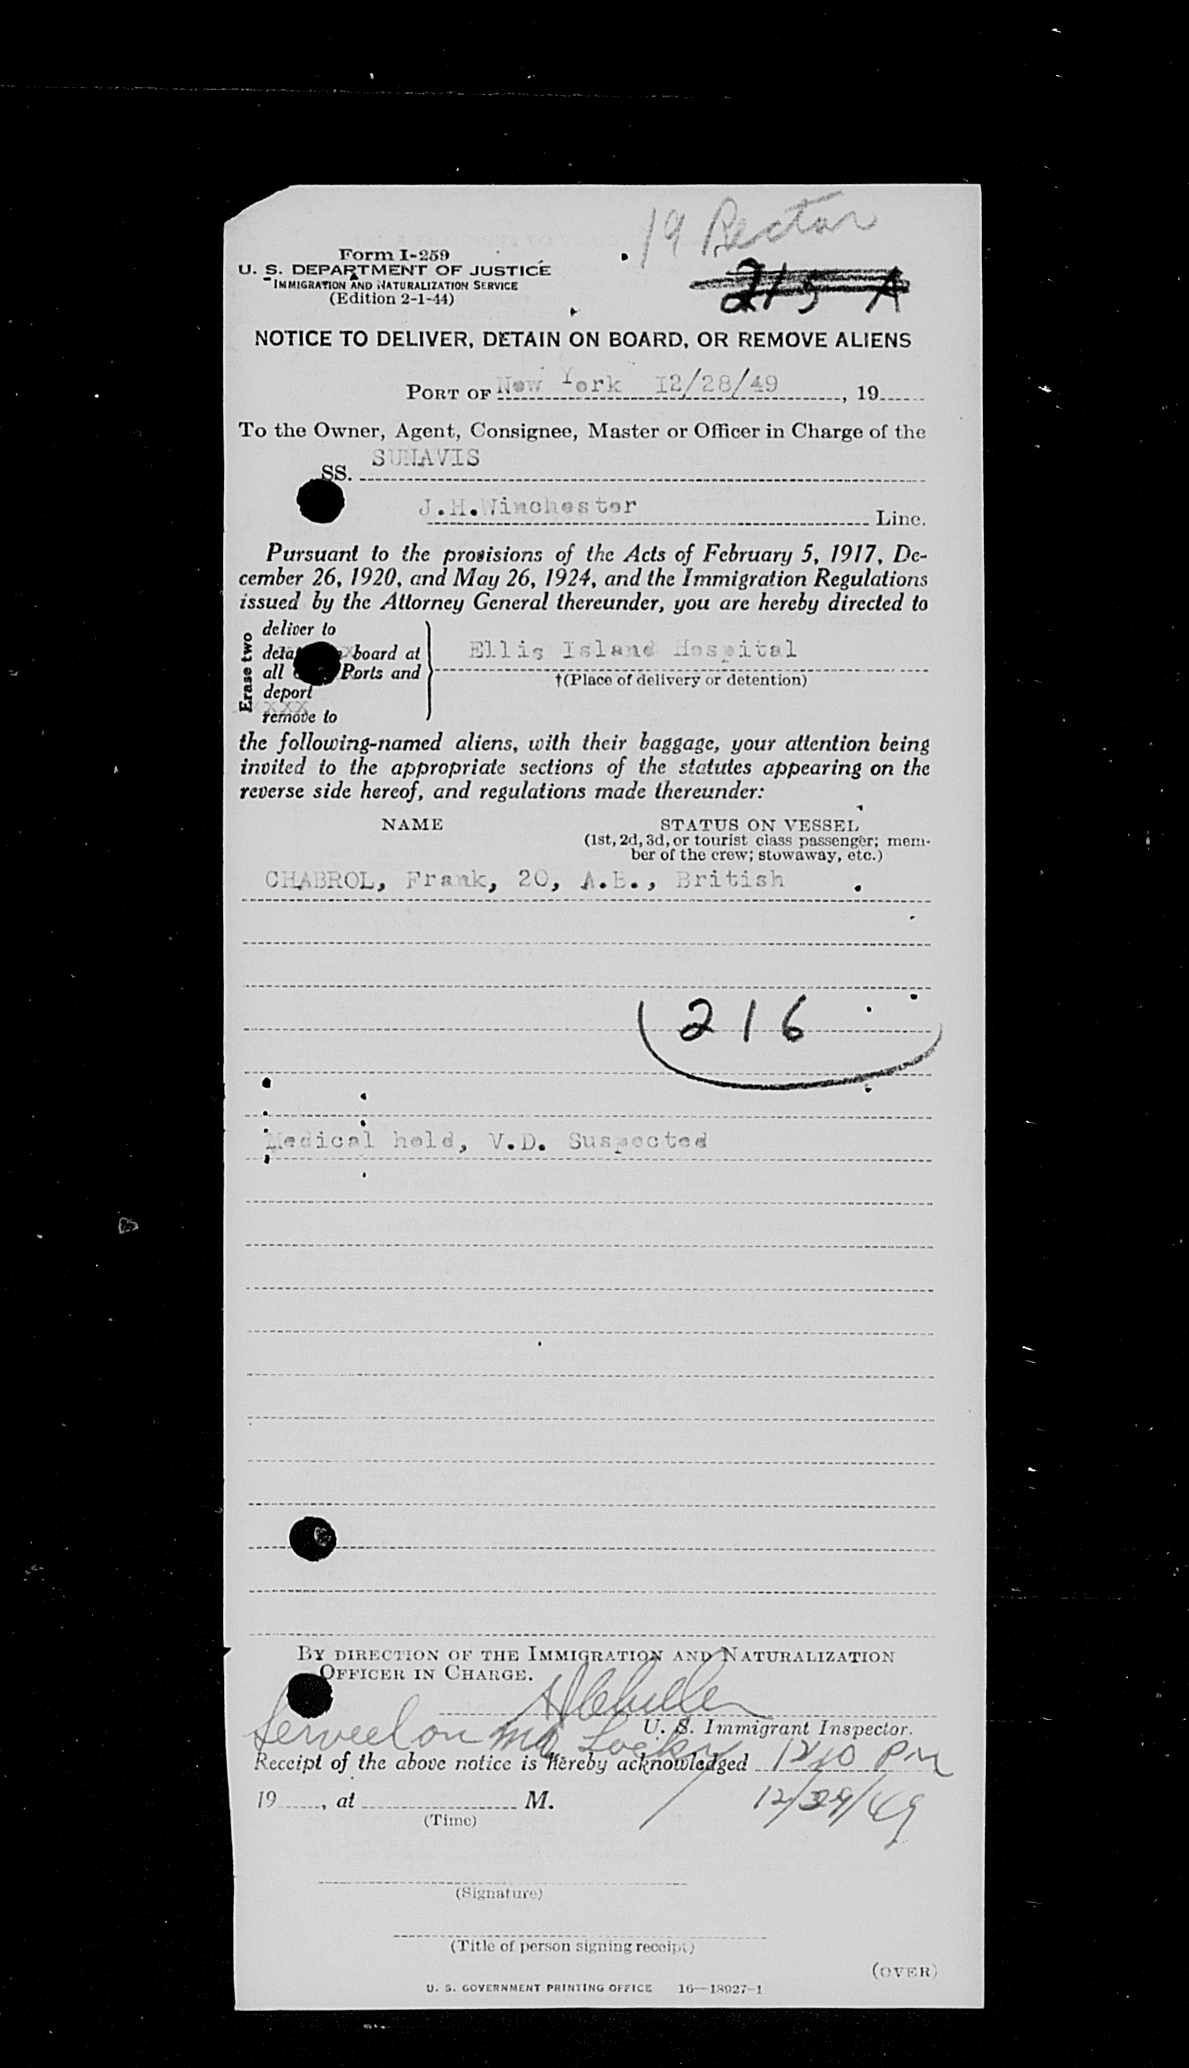 19 Rector
Form I-259
U. S. DEPARTMENT OF JUSTICE
IMMIGRATION AND NATURALIZATION SERVICE
(Edition 2-1-44)
215 A
NOTICE TO DELIVER, DETAIN ON BOARD, OR REMOVE ALIENS
PORT OF New York 12/28/49, 19
To the Owner, Agent, Consignee, Master or Officer in Charge of the
SS. SUNAVIS
J.H.Winchester Line.
Pursuant to the provisions of the Acts of February 5, 1917, De-
cember 26, 1920, and May 26, 1924, and the Immigration Regulations
issued by the Attorney General thereunder, you are hereby directed to
Erase two
deliver to
board at
all Ports and
deport
XXX
remove to
Ellis Island Hospital
†(Place of delivery or detention)
the following-named aliens, with their baggage, your attention being
invited to the appropriate sections of the statutes appearing on the
reverse side hereof, and regulations made thereunder:
NAME STATUS ON VESSEL
(1st, 2d, 3d, or tourist class passenger; mem-
ber of the crew; stowaway, etc.)
CHABROL, Frank, 20, A.B., British
216
Medical hold, V.D. Suspected
BY DIRECTION OF THE IMMIGRATION AND NATURALIZATION
OFFICER IN CHARGE.
U. S. Immigrant Inspector.
Served on Mr
Receipt of the above notice is hereby acknowledged 1210 PM
19, at M. 12/29/49
(Time)
(Signature)
(Title of person signing receipt)
(OVER)
U. S. GOVERNMENT PRINTING OFFICE 16—18927-1